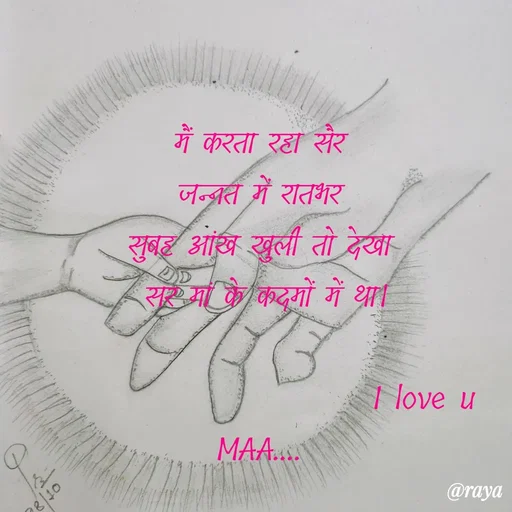 मैं करता रहा सैर
जन्नत में रातभर
सुबह आंख खुली तो देखा
सर मां के कदमों में था।
I love u
MAA....
@raya